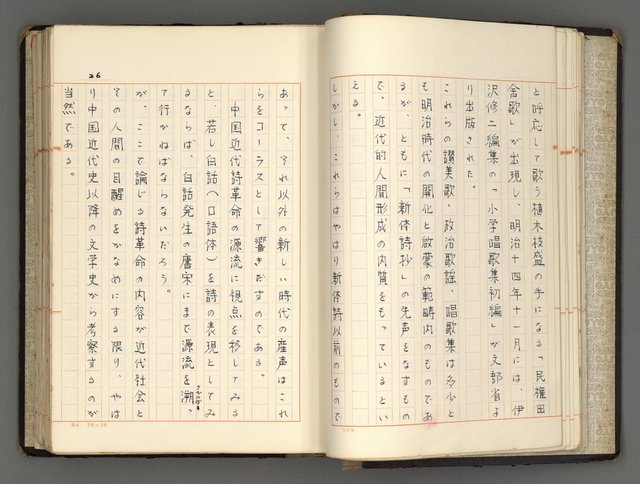 と呼応して歌う植木枝盛の手になる「民権田
舎歌」が出現し、明治十四年十一月には、伊
沢修二編集の「小学唱歌集初編」が文部省よ
り出版された。
これらの讃美歌・政治歌謡、唱歌集は多少と
も明治時代の開化と啓蒙の範疇内のものであ
るが、ともに「新体詩抄」の先声をなすもの
で、近代的人間形成の内質をもっているとい
える。
しかし、これらはやはり新体詩以前のもので
26
あって、それ以外の新しい時代の産声はこれ
らをコーラスとして響きだすのである。
中国近代詩革命の源流に視点を移してみる
と、若し白話（口語体）を詩の表現としてみ
るならば、白話発生の唐宋にまで源流を溯、
さかのぼっ
て行かねばならないだろう。
が、ここで論じる詩革命の内容が近代社会と
その人間の目醒めをかなめにする限り、やは
り中国近代史以降の文学史から考察するのが
当然である。
20×20